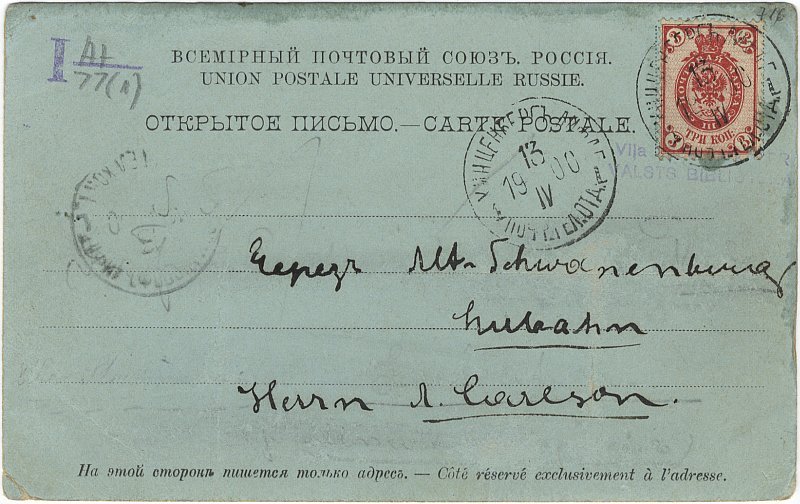 I A1
77(1)
ВСЕМІРНЫЙ ПОЧТОВЫЙ СОЮЗЪ. РОССІЯ.
UNION POSTALE UNIVERSELLE RUSSIE.
ОТКРЫТОЕ ПИСЬМО.—CARTE POSTALE.
3 3
ТРИ КОП.
13
19 00
IV
VALSTS
Черезъ Alt-Schwanenburg
Lubahn
Herrn A. Carlson.
На этой сторонѣ пишется только адресъ. — Côté réservé exclusivement à l'adresse.